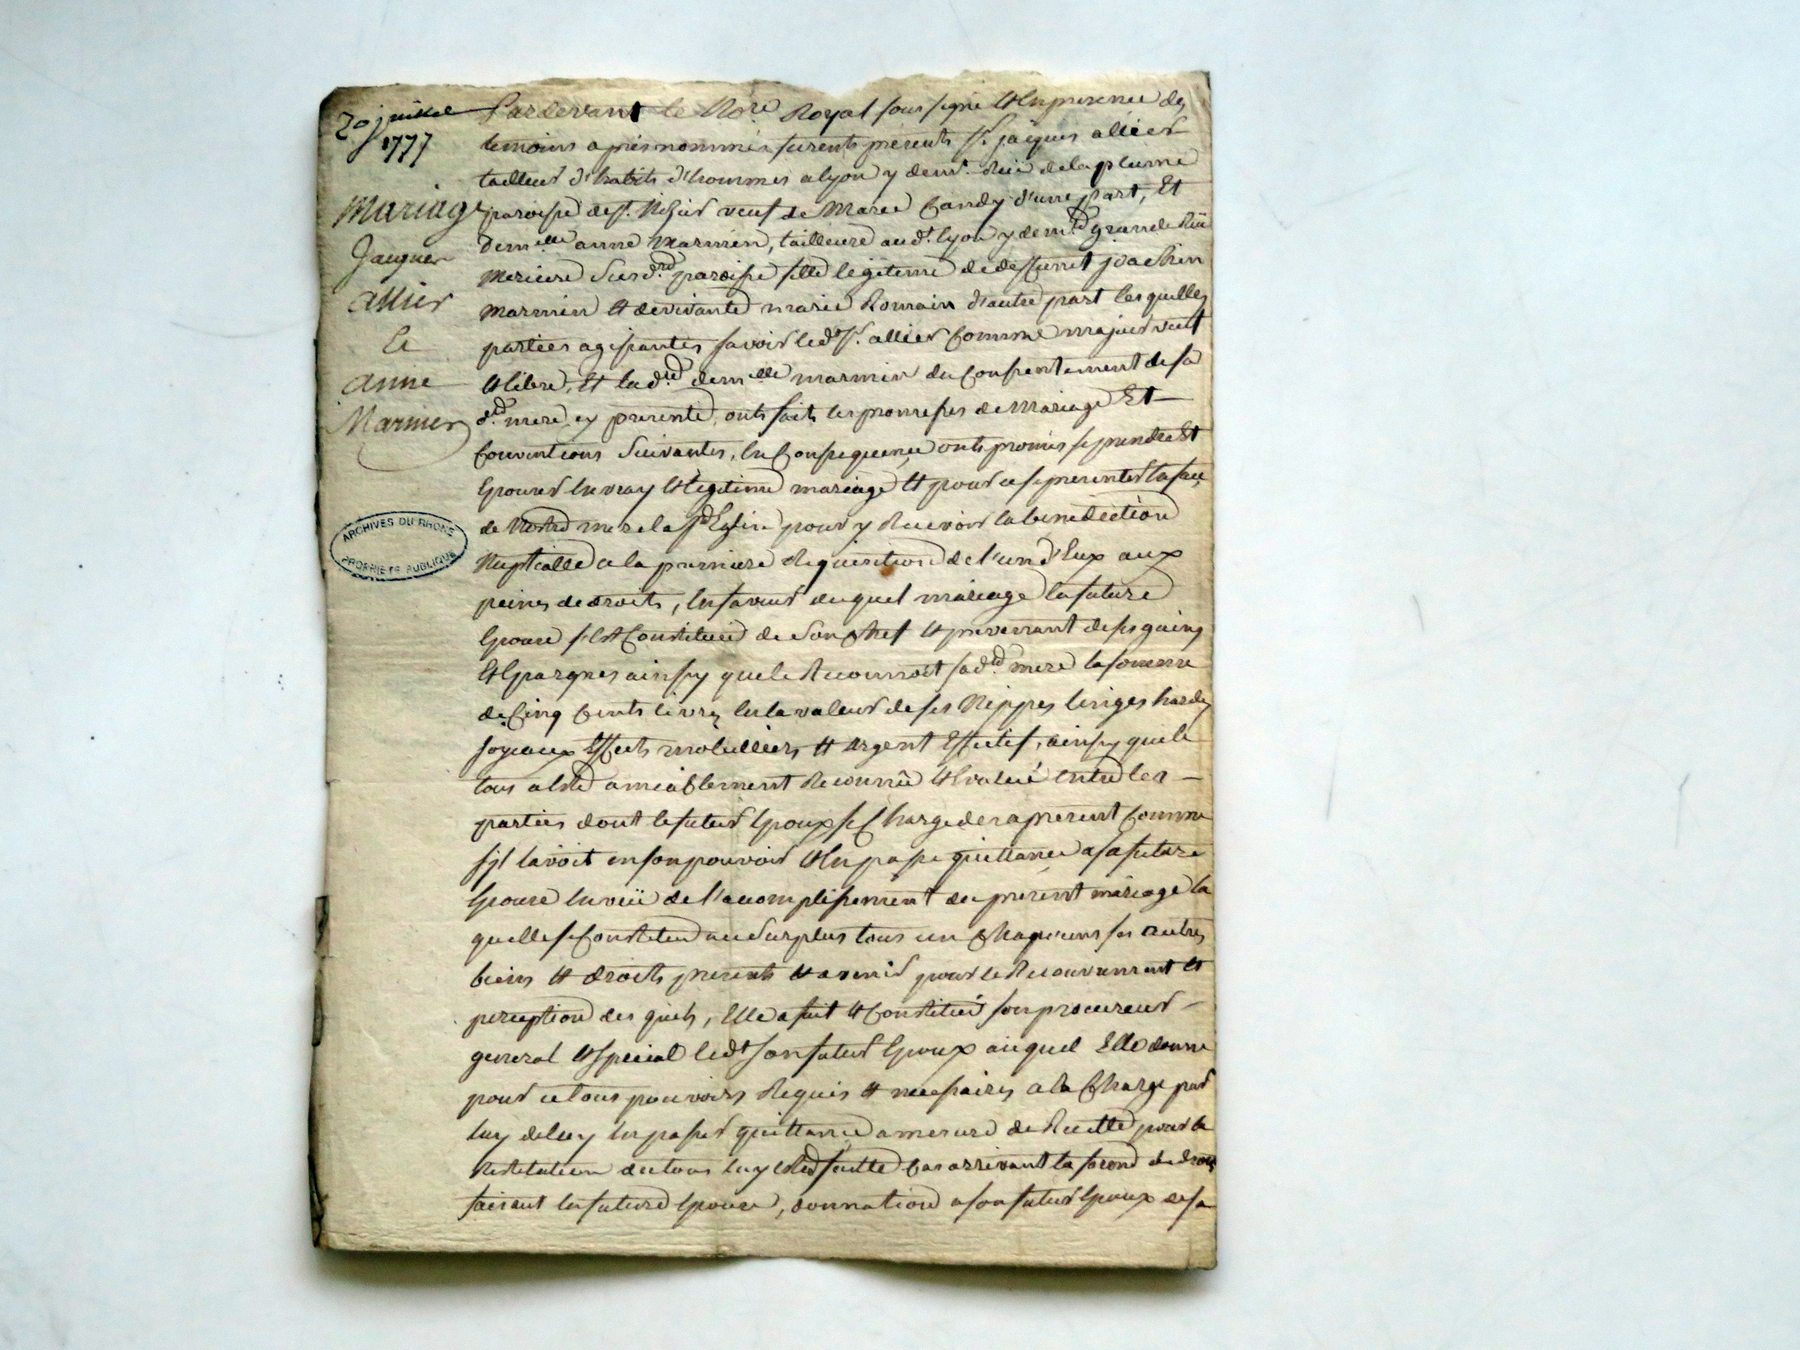 20 juillet
1777
Mariage
Jacques
allier
Et
anne
Marmier
ARCHIVES DU RHONE
PROPRIETE PUBLIQUE
Pardevant le No.re Royal sous signé Et En presence des
temoins apres nommés furents presents s.r jacques allier
tailleur d'habits d'hommes a lyon y dem.t Rüe de la plume
paroisse de s.t Nizier veuf de Marie Candy d'une part, Et
Dem.elle anne Marmier, tailleuse aud.t lyon y dem.t grande Rüe
Merciere Susd.te paroisse fille legitime de deffunt joachin
marmier Et de vivante marie Romain d'autre part lesquelles
parties agissantes savoir led.t s.r allier Comme majeur veuf
Et libre, Et lad.te dem.elle marmier du Consentement de sa
d.te mere, cy presente, onts faits les promesses de Mariage Et
Conventions Suivantes, En Consequence onts promis se prendre Et
Epouser En vray Et legitime mariage Et pour ce se presenter En face
de Notre mere la s.te Eglise pour y Recevoir la benediction
Nuptialle a la premiere Requisition de l'un d'Eux aux
peines de droits, En faveur duquel mariage la future
Epouse s'Est Constituée de Son Chef Et provenant de ses gains
Et Epargnes ainsy que le Reconnoit sad.te mere la somme
de Cinq Cents livres En la valeur de ses Nippes linges hardes
joyeaux Effects mobilliers Et argent Effectif, ainsy que le
tous a Eté amiablement Reconnu Et Evalué Entre les
parties dont le futur Epoux se Charge des a present Comme
s'il l'avoit en son pouvoir Et En passe quittance a sa future
Epouse En vüe de l'accomplissement du present mariage la
quelle se Constitue au Surplus tous un Chaqu'uns ses autres
biens Et droits presents Et avenir pour le Recouvrement Et
perception des quels, Elle a fait Et Constitué son procureur
general Et special led.t son futur Epoux auquel Elle donne
pour ce tous pouvoirs Requis Et necessaires a la Charge par
luy de luy En passer quittance a mesure de Recette pour la
Restitution du tous luy Etre faitte Cas arrivant la seconde de droit
faisant la future Epouse, donnation a son futur Epoux de sa